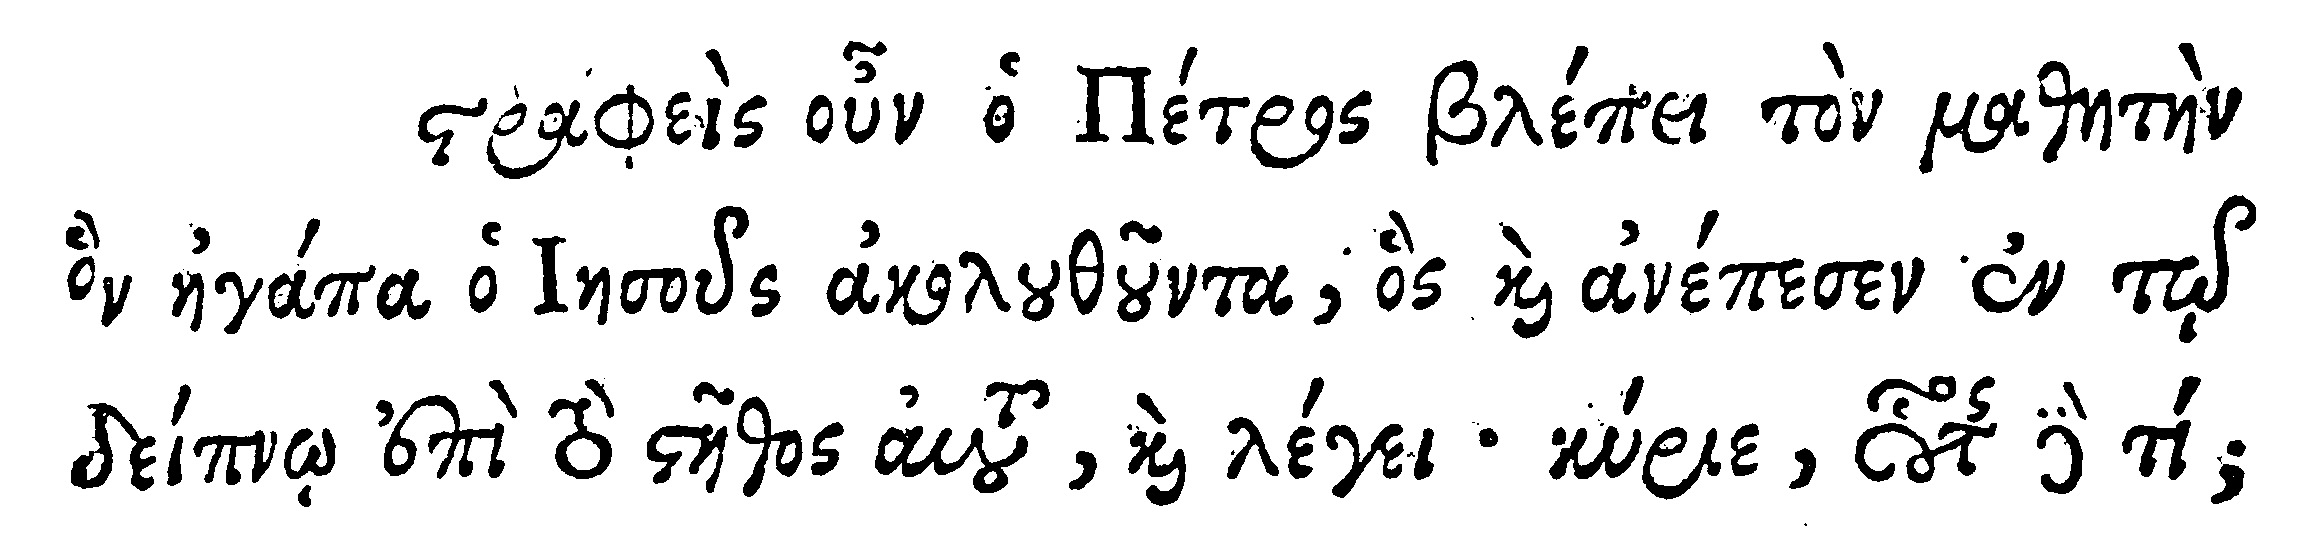 στραφεὶς οὖν ὁ Πέτρος βλέπει τὸν μαθητὴν
ὃν ἠγάπα ὁ Ιησοῦς ἀκολουθοῦντα, ὃς καὶ ἀνέπεσεν ἐν τῷ
δείπνῳ ἐπὶ τὸ στῆθος αὐτοῦ, καὶ λέγει · κύριε, οὗτος δὲ τί;